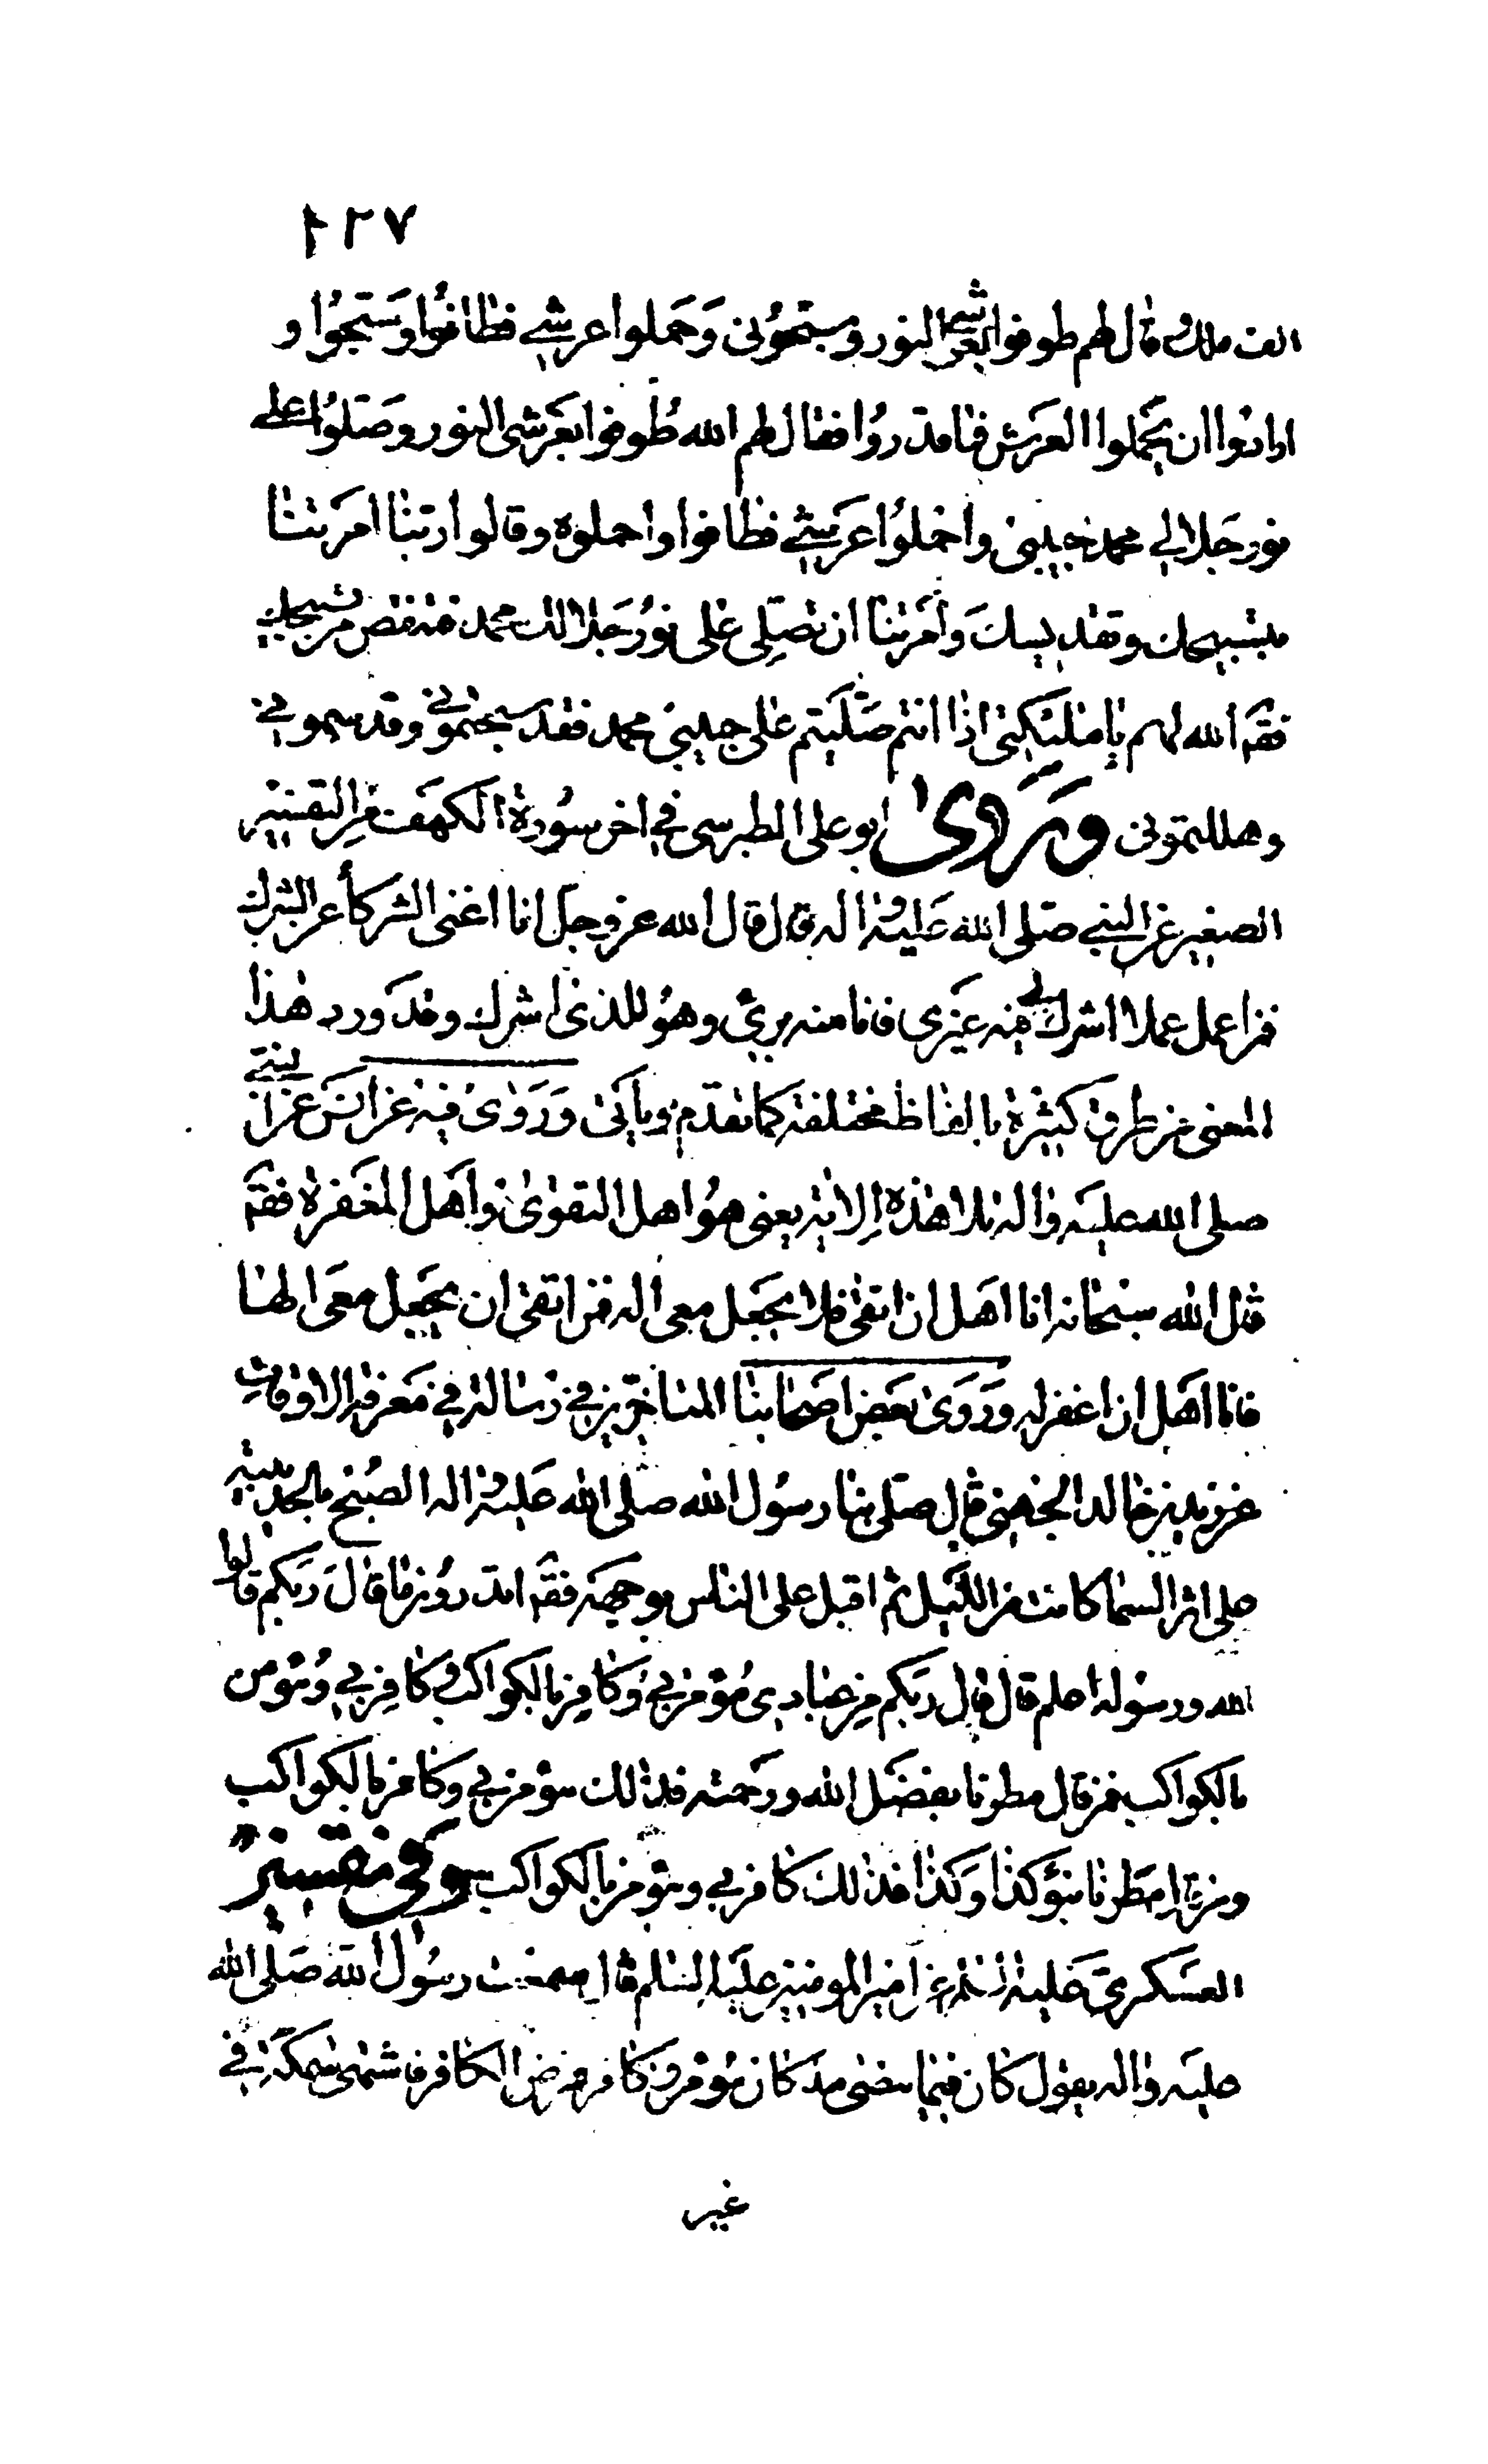 ١٢٧
الف ملك وقال لهم طوفوا بعرشى النور وسبحونى وَحَملوا عرشى فطافُوا وَسَبّحُوا و
ارادوا ان يَحملوا العَرش فما قدرُوا فقال لهم الله طُوفوا بعَرشى النور وصَلّوُا على
نور جَلالى محمد حبيبى واحملوُا عَرشى فطافوا واحملوه وقالوا ربّنا امرَتنا
بتسبيحك وتقديسك وَامَرتنا ان نصَلِى على نوُر جَلالك محمد فننقص من تسبيحك
فقَ الله لهم يا ملئكتى اذا انتم صَلّيتم على حبيبى محمد فقد سبحتمونى وقدستمونى
وهللتمونى وَرَوىٰ ابو على الطبرسى فى اخر سُورة الكهف من التفسير
الصغير عن النبى صَلى الله عَليه واله قال قال الله عز وجل انا اغنى الشركأ عن الشرك
فمن عمل عملا اشرك لى فيه غيَرى فانا منه برئ وهوُ للذى اشرك وقد ورد هذا
المعنى من طرق كثيرة بالفاظ مختلفة كما تقدم وياتى وَرَوىٰ فيه عن انسَ عن النبى
صلى الله عليه واله تلا هذه الاية يعنى هوُ اهل التقوىٰ واهَل المغَفرة فقَ
قال الله سبحانه انا اهَل ان اتقى فلا يجَعَل معى اله فمن اتقى ان يجَعل معَى الها
فانا اهَل ان اغفر له وَرَوىٰ بَعض اصَحابنا المتاخرين فى رسالة فى مَعرفة الاوقات
عن زيد بن خالد الجهنى قال صَلى بنا رسوُل الله صلى الله عَليه واله الصُبح بالحديبية
على اثر السما كانت من الليل ثم اقبل على الناس بوجهه فقَ اتدرُون ما قال رَبكم قالوا
الله ورسوُله اعلم قال قال رَبكم من عبادى مُؤمن بى وَكافر بالكواكب وكافِر بى وَمُؤمن
بالكواكب فمن قال مطرنا بفضَل الله ورَحمته فذلك مؤمن بى وكافر بالكواكب
ومن قال مطرنا بنؤ كذا وَكذا فذلك كافر بى ومؤمن بالكواكب وفى تفسيرُ
العسَكرىّ عَليه السلم عن امير المومنين عليه السلم قال سمعت رسوُل الله صَلى الله
عليَه واله يقوُل كان فيما مضى مؤمن وكافر مرض الكافر فاشتهى سمكة فى
غير